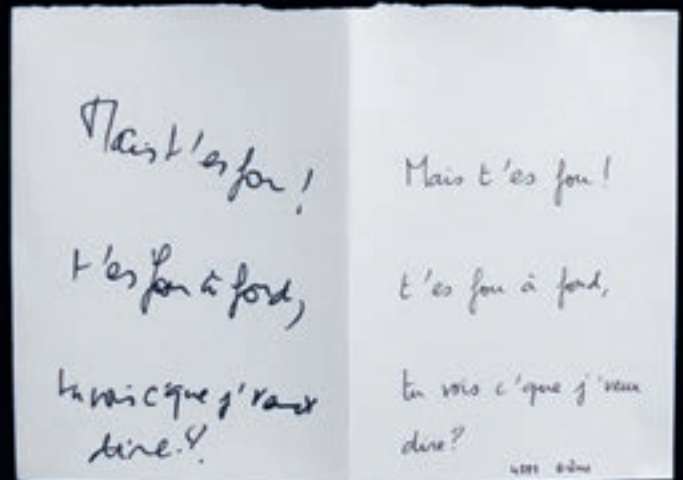 Mais t'es fou !
t'es fou à fond,
tu vois c'que j'veux
dire ?
Mais t'es fou !
t'es fou à fond,
tu vois c'que j'veux
dire ?